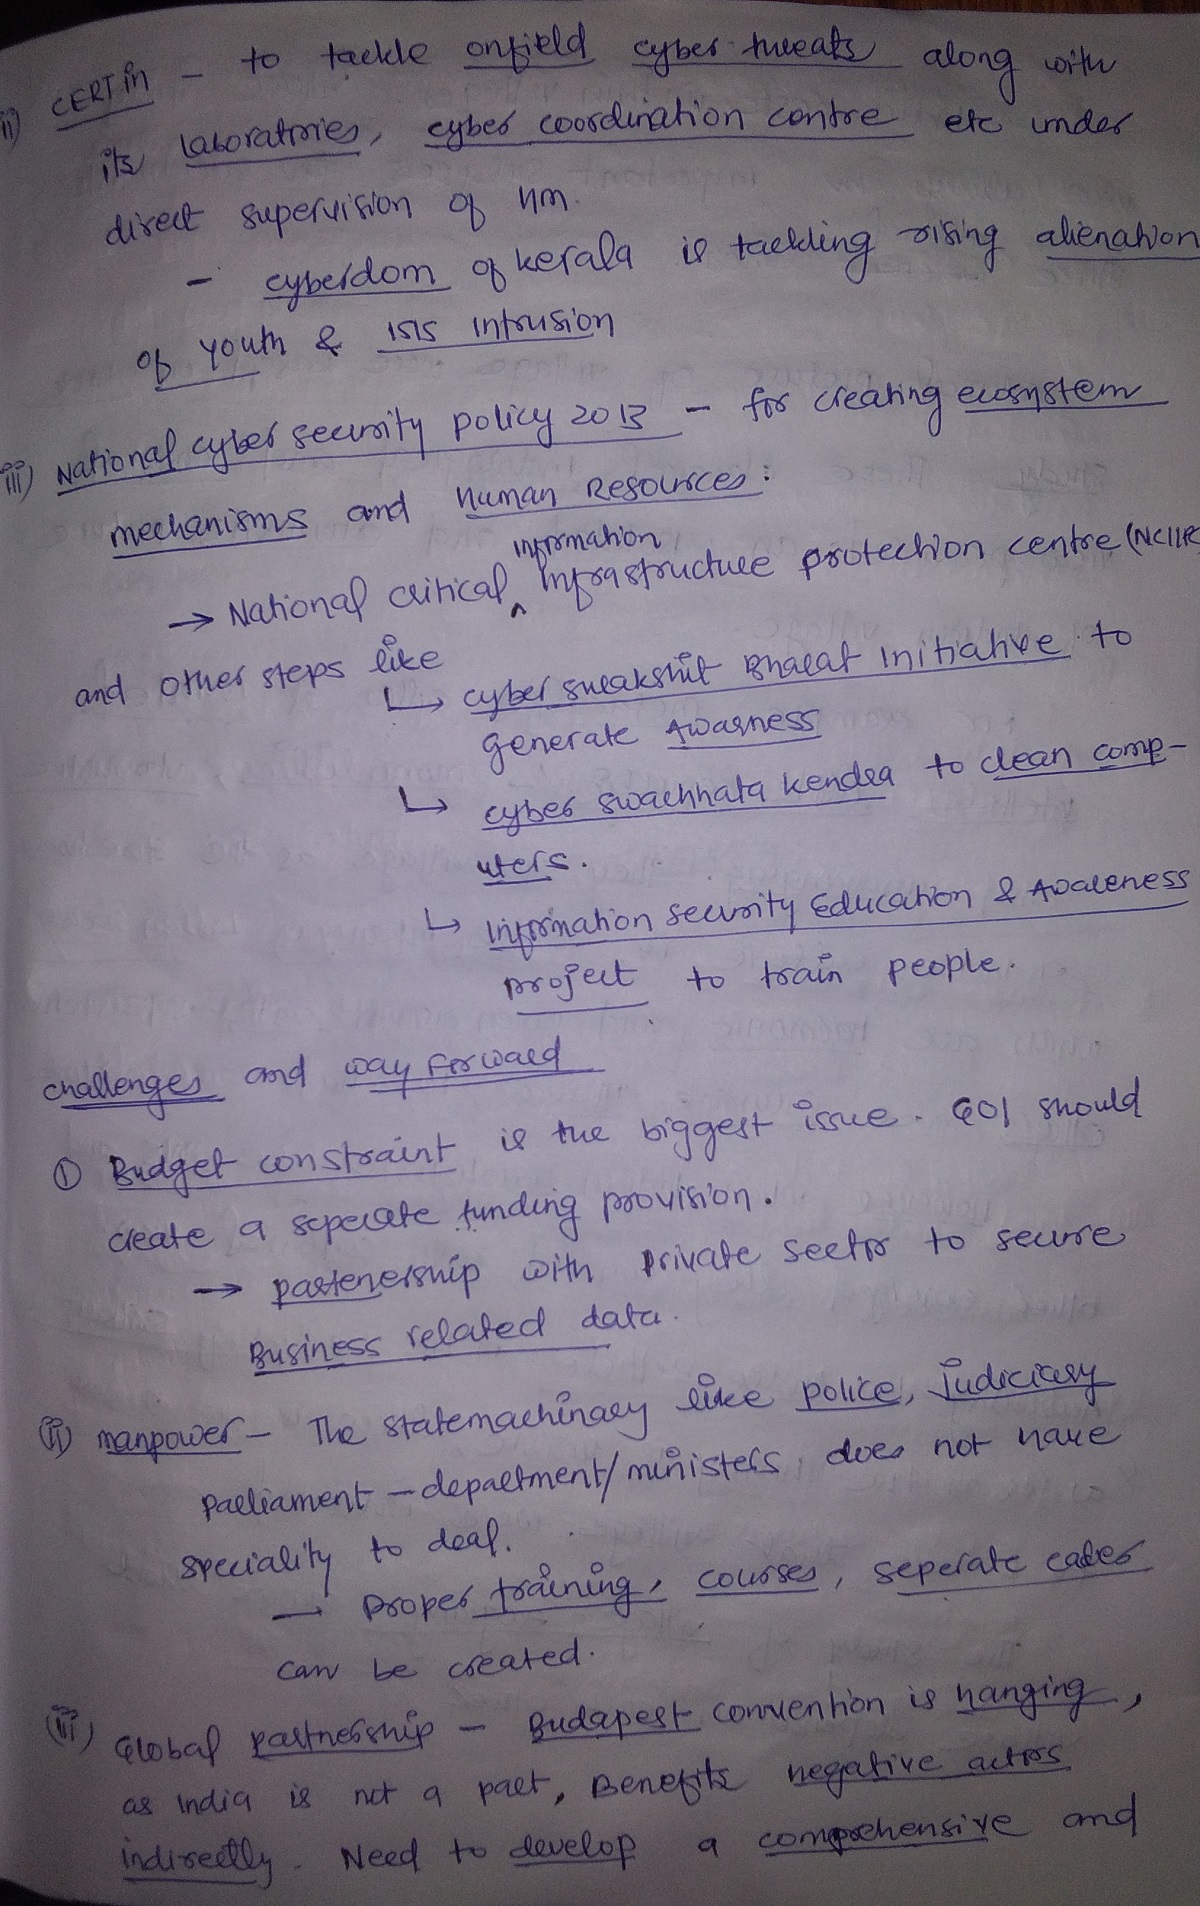 ii) CERT in - to tackle onfield cyber threats along with
its laboratories, cyber coordination centre etc under
direct supervision of HM.
- cyberdom of Kerala is tackling rising alienation
of youth & ISIS intrusion
iii) National cyber security policy 2013 - for creating ecosystem
mechanisms and Human Resources:
information
→ National critical ^ Infrastructure protection centre (NCIIPC
and other steps like
↳ cyber surakshit Bharat initiative to
generate Awarness
↳ cyber swachhata kendra to clean comp-
uters.
↳ information security Education & Awareness
project to train people.
challenges and way forward
① Budget constraint is the biggest issue. GOI should
create a seperate funding provision.
→ partenership with private sector to secure
Business related data.
(ii) manpower - The statemachinary like police, judiciary
parliament - department/ministers does not have
speciality to deal.
→ proper training, courses, seperate cader
can be created.
(iii) Global partnership - Budapest convention is hanging,
as India is not a part, Benefits negative actors
indirectly. Need to develop a comprehensive and